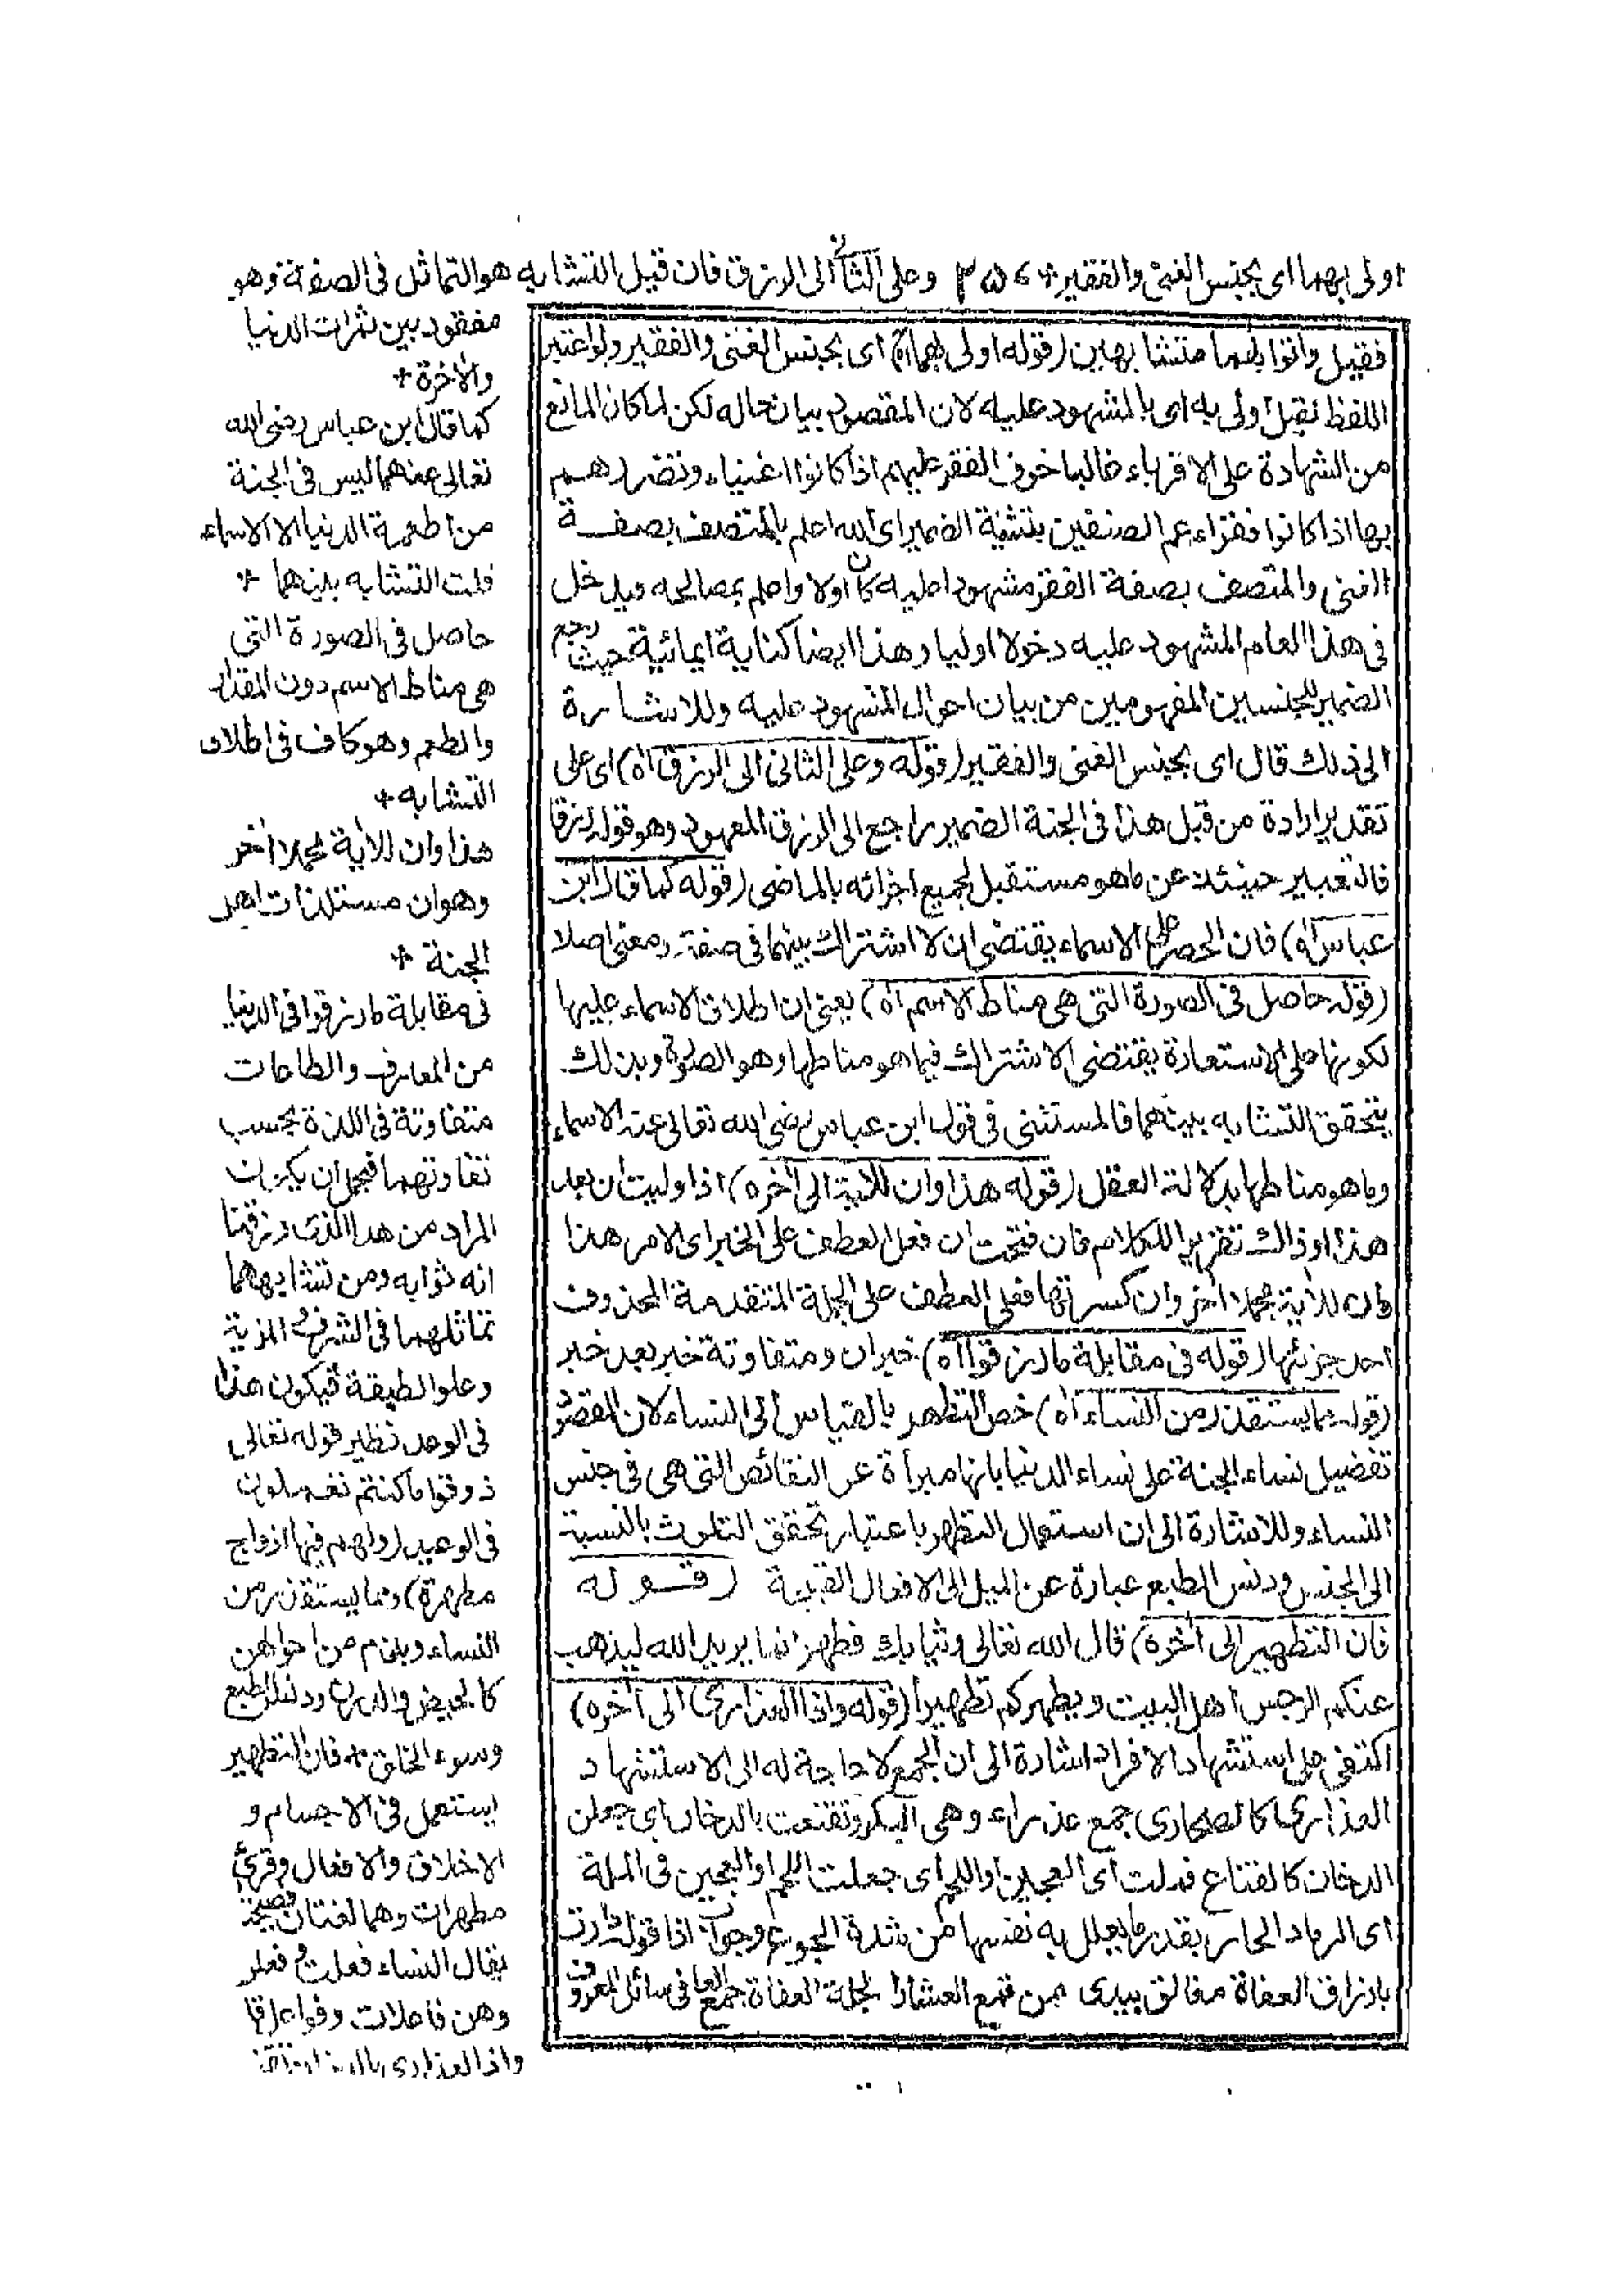 اولى بهما اى بجنس الغنى والفقير * ٣٥٦ وعلى الثانى الى الرزق فان قيل التشابه هو التماثل فى الصفة وهو
مفقود بين ثمرات الدنيا
والاخرة *
كما قال ابن عباس رضى الله
تعالى عنهما ليس فى الجنة
من اطعمة الدنيا الا الاسماء
قلت التشابه بينهما *
حاصل فى الصورة التى
هى مناط الاسم دون المقدار
والطعم وهو كاف فى اطلاق
التشابه *
هذا وان للأية محملا أخر
وهو ان مستلذات اهل
الجنة *
فى مقابلة ما رزقوا فى الدنيا
من المعارف والطاعات
متفاوتة فى اللذة بحسب
تفاوتهما فيحمل ان يكون
المراد من هذا الذى رزقنا
انه ثوابه ومن تشابههما
تماثلهما فى الشرف والمزية
وعلو الطبقة فيكون هذا
فى الوعد نظير قوله تعالى
ذوقوا ما كنتم تعملون
فى الوعيد (ولهم فيها ازواج
مطهرة) مما يستقذر من
النساء ويذم من احوالهن
كالحيض والدرن ودنس الطبع
وسوء الخلق * فان التطهير
يستعمل فى الاجسام و
الاخلاق والافعال وقرئ
مطهرات وهما لغتان فصيحتان
يقال النساء فعلت وفعلن
وهن فاعلات وفواعل قال
واذا العذارى بالدخان تقنعت
فقيل واتوا بهما متشابهين (قوله اولى بهما اه) اى بجنس الغنى والفقير ولو اعتبر
اللفظ لقيل اولى به اى بالمشهود عليه لان المقصود بيان حاله لكن لما كان المانع
من الشهادة على الاقرباء غالبا خوف الفقر عليهم اذا كانوا اغنياء وتضررهم
بها اذا كانوا فقراء عم الصنفين بتثنية الضمير اى الله اعلم بالمتصف بصفة
الغنى والمتصف بصفة الفقر مشهودا عليه كان اولا واعلم بمصالحه ويدخل
فى هذا العام المشهود عليه دخولا اوليا وهذا ايضا كناية ايمائية حيث رجع
الضمير للجنسين المفهومين من بيان احوال المشهود عليه وللاشارة
الى ذلك قال اى بجنس الغنى والفقير (قوله وعلى الثانى الى الرزق اه) اى على
تقدير ارادة من قبل هذا فى الجنة الضمير راجع الى الرزق المعهود وهو قوله رزقا
فالتعبير حينئذ عن ما هو مستقبل لجميع اجزائه بالماضى (قوله كما قال ابن
عباس اه) فان الحصر على الاسماء يقتضى ان لا اشتراك بينهما فى صفة ومعنى اصلا
(قوله حاصل فى الصورة التى هى مناط الاسم اه) يعنى ان اطلاق الاسماء عليها
لكونها على الاستعارة يقتضى الاشتراك فيما هو مناطها وهو الصورة وبذلك
يتحقق التشابه بينهما فالمستثنى فى قول ابن عباس رضى الله تعالى عنه الاسماء
وما هو مناطها بدلالة العقل (قوله هذا وان للاية الى أخره) اذا وليت ان بعد
هذا او ذاك تقريرا للكلام فان فتحت ان فعلى العطف على الخبر اى الامر هذا
وان للأية محملا أخر وان كسرتها فعلى العطف على الجملة المتقدمة المحذوف
احد جزئيها (قوله فى مقابلة ما رزقوا اه) خبر ان ومتفاوتة خبر بعد خبر
(قوله مما يستقذر من النساء اه) خص التطهر بالقياس الى النساء لان المقصود
تفضيل نساء الجنة على نساء الدنيا بانها مبرأة عن النقائص التى هى فى جنس
النساء وللاشارة الى ان استعمال التطهر باعتبار تحقق التلوث بالنسبة
الى الجنس ودنس الطبع عبارة عن الميل الى الافعال القبيحة (قوله
فان التطهير الى أخره) قال الله تعالى وثيابك فطهر انما يريد الله ليذهب
عنكم الرجس اهل البيت ويطهركم تطهيرا (قوله واذا العذارى الى أخره)
اكتفى على استشهاد الافراد اشارة الى ان الجمع لا حاجة له الى الاستشهاد
العذارى كالصحارى جمع عذراء وهى البكر وتقنعت بالدخان اى جعلن
الدخان كالقناع فملت اى العجين او اللحم اى جعلت اللحم او العجين فى الملة
اى الرماد الحار بقدر ما يعلل به نفسها من شدة الجوع وجواب اذا قوله دارت
بارزاق العفاة مغالق بيدى من قمع العشار الجلة العفاة جمع العافى سائل المعروف